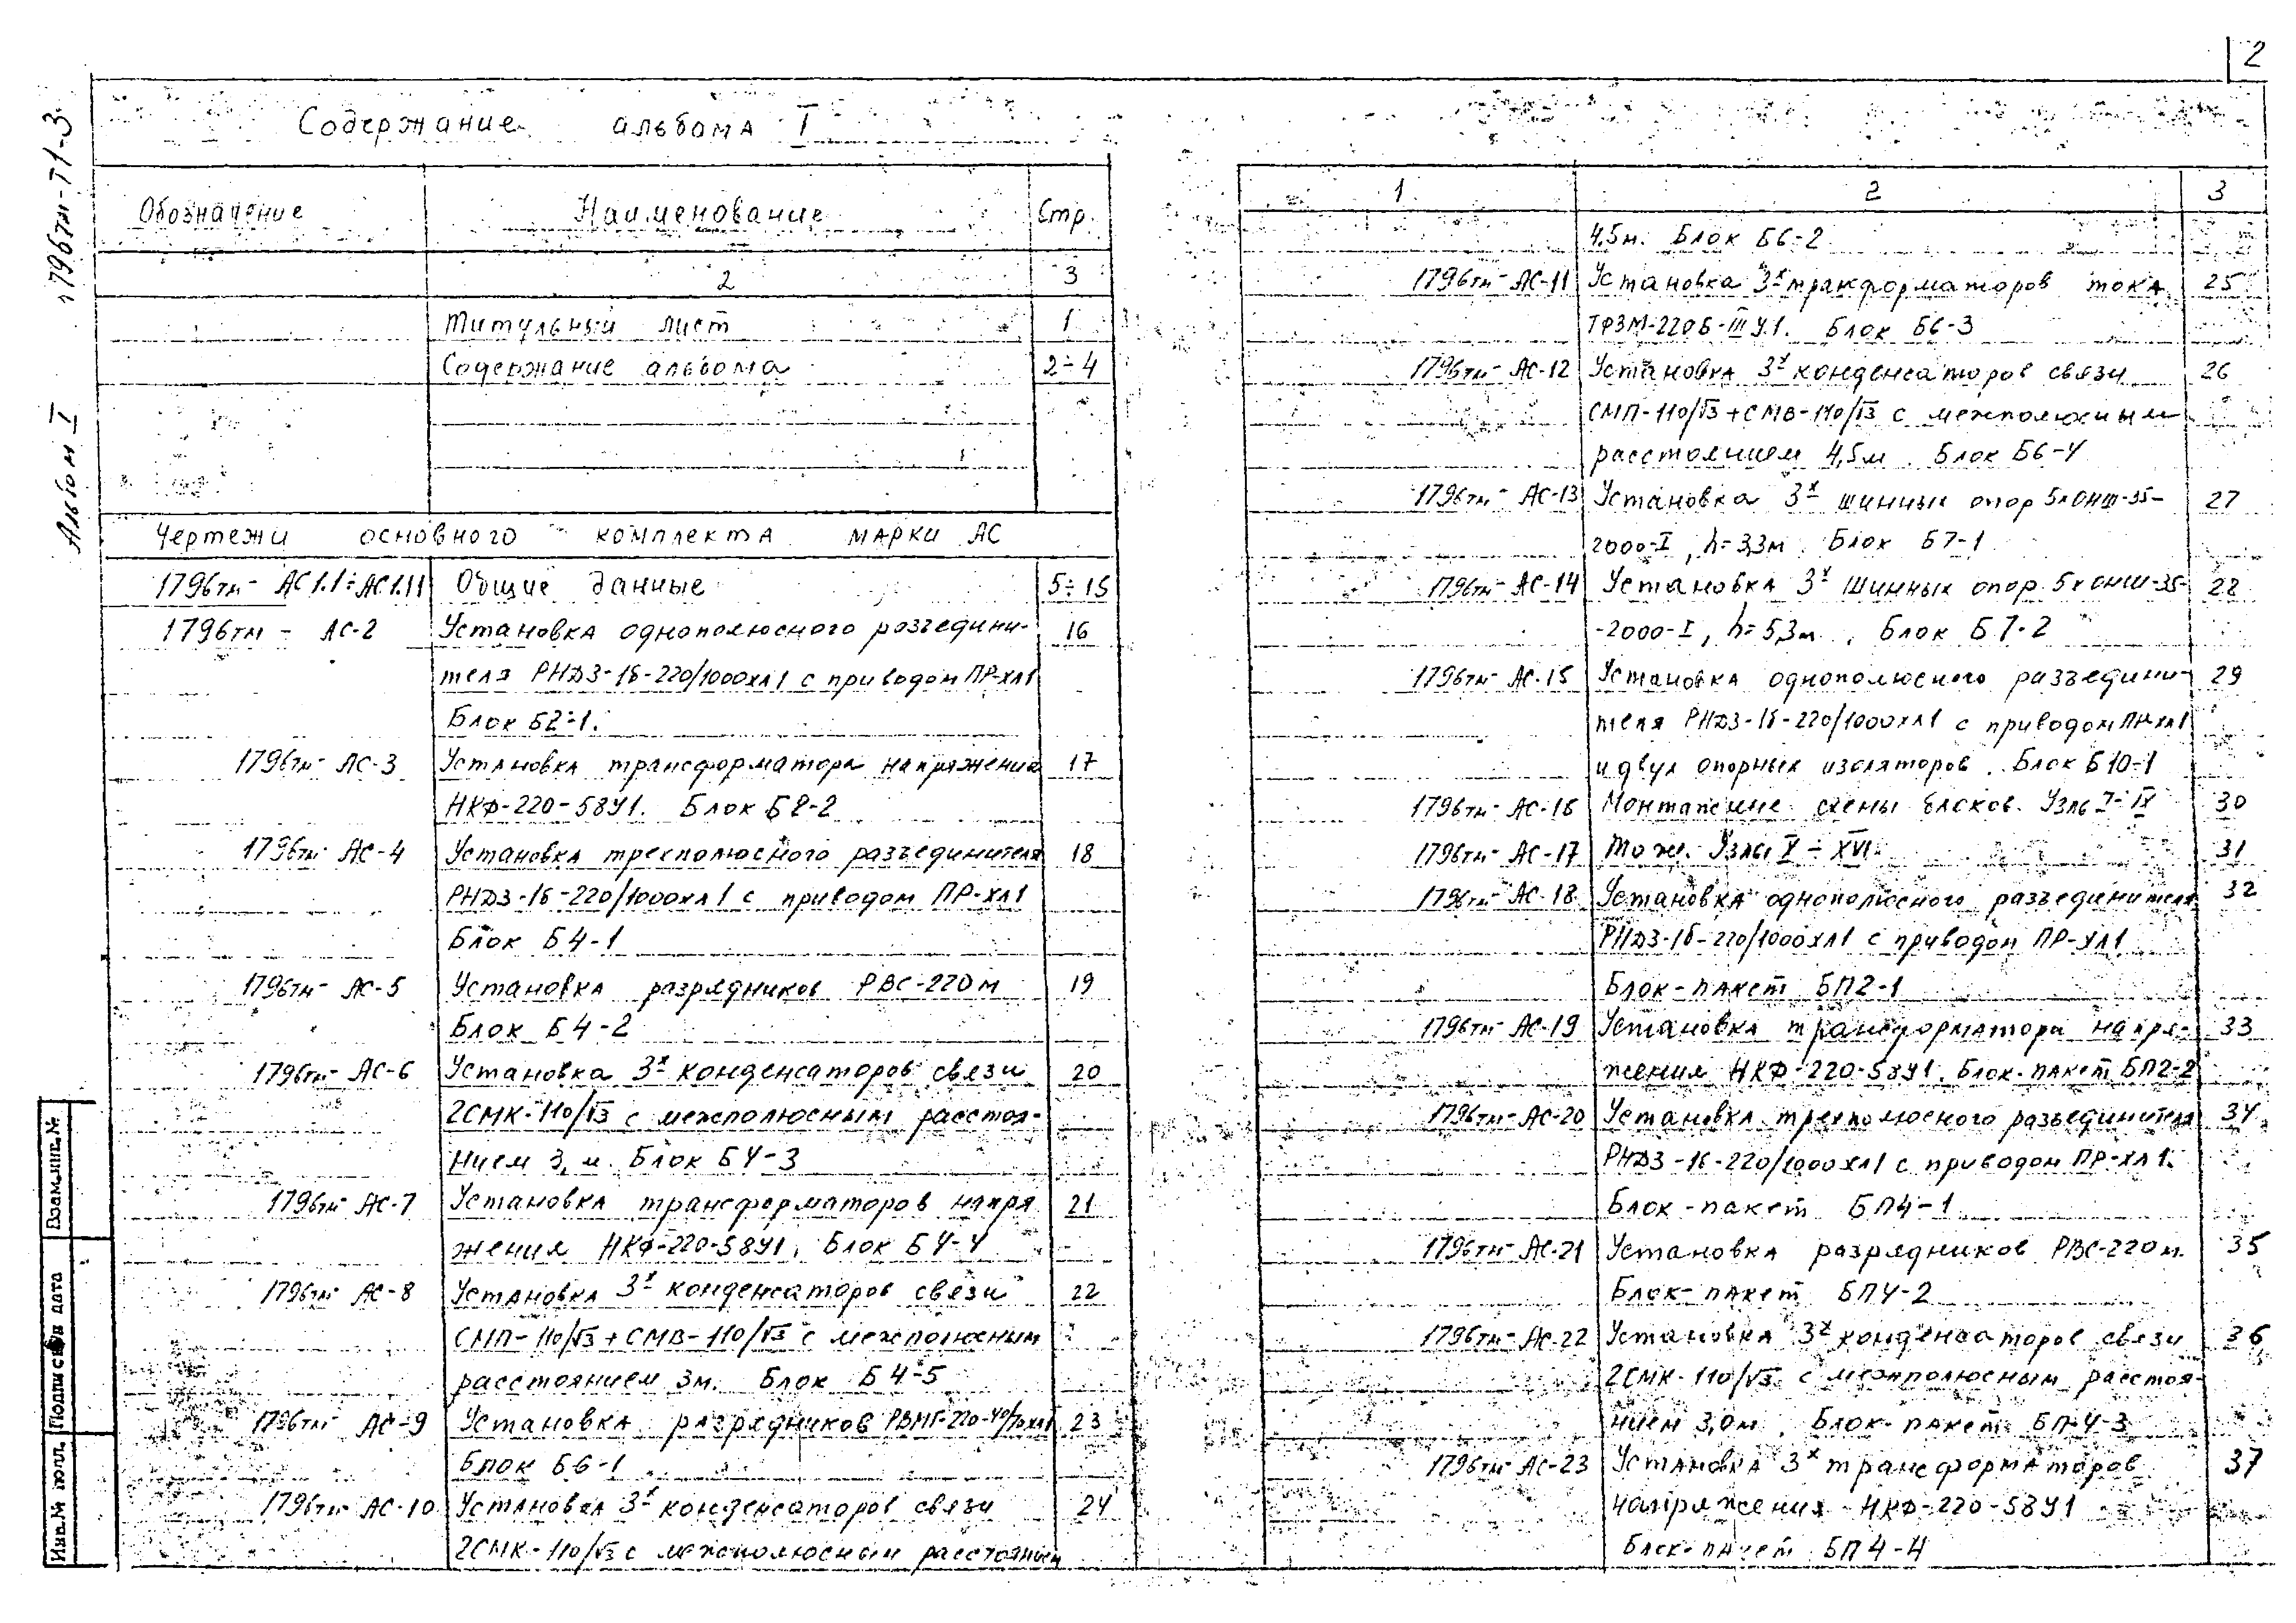 2
1796тм-Т1-3
Альбом I
Содержание альбома I
Обозначение Наименование Стр.
2 3
Титульный лист 1
Содержание альбома 2÷4
Чертежи основного комплекта марки АС
1796тм- АС1.1÷АС1.11 Общие данные 5÷15
1796тм- АС-2 Установка однополюсного разъедини- 16
теля РНДЗ-1б-220/1000хл1 с приводом ПР-хл1
Блок Б2-1.
1796тм- АС-3 Установка трансформатора напряжения 17
НКФ-220-58У1. Блок Б2-2
1796тм- АС-4 Установка трехполюсного разъединителя 18
РНДЗ-1б-220/1000хл1 с приводом ПР-хл1
Блок Б4-1
1796тм- АС-5 Установка разрядников РВС-220м 19
Блок Б4-2
1796тм- АС-6 Установка 3х конденсаторов связи 20
2СМК-110/√3 с межполюсным расстоя-
нием 3, м. Блок Б4-3
1796тм- АС-7 Установка трансформаторов напря 21
жения НКФ-220-58У1. Блок Б4-4
1796тм- АС-8 Установка 3х конденсаторов связи 22
СМП-110/√3+СМВ-110/√3 с межполюсным
расстоянием 3м. Блок Б4-5
1796тм- АС-9 Установка разрядников РВМГ-220-40/70хл1 23
Блок Б6-1
1796тм- АС-10 Установка 3х конденсаторов связи 24
2СМК-110/√3 с межполюсным расстоянием
1 2 3
4,5м. Блок Б6-2
1796тм- АС-11 Установка 3х трансформаторов тока 25
ТФЗМ-220Б-III У1. Блок Б6-3
1796тм- АС-12 Установка 3х конденсаторов связи 26
СМП-110/√3+СМВ-110/√3 с межполюсным
расстоянием 4,5м. Блок Б6-4
1796тм- АС-13 Установка 3х шинных опор 5хОНШ-35- 27
2000-I, h=3,3м. Блок Б7-1
1796тм- АС-14 Установка 3х шинных опор 5хОНШ-35- 28
-2000-I, h=5,3м. Блок Б7-2
1796тм- АС-15 Установка однополюсного разъедини- 29
теля РНДЗ-1б-220/1000хл1 с приводом ПР-хл1
и двух опорных изоляторов. Блок Б10-1
1796тм- АС-16 Монтажные схемы блоков. Узлы I-IX 30
1796тм- АС-17 То же. Узлы X-XVI 31
1796тм- АС-18 Установка однополюсного разъединителя 32
РНДЗ-1б-220/1000хл1 с приводом ПР-хл1
Блок-пакет БП2-1
1796тм- АС-19 Установка трансформатора напря- 33
жения НКФ-220-58У1. Блок-пакет БП2-2
1796тм- АС-20 Установка трехполюсного разъединителя 34
РНДЗ-1б-220/1000хл1 с приводом ПР-хл1.
Блок-пакет БП4-1
1796тм- АС-21 Установка разрядников РВС-220м. 35
Блок-пакет БП4-2
1796тм- АС-22 Установка 3х конденсаторов связи 36
2СМК-110/√3 с межполюсным расстоя-
нием 3,0м. Блок-пакет БП4-3
1796тм- АС-23 Установка 3х трансформаторов 37
напряжения НКФ-220-58У1
Блок-пакет БП4-4
Взам.инв.№
Подпись и дата
Инв.№ подл.